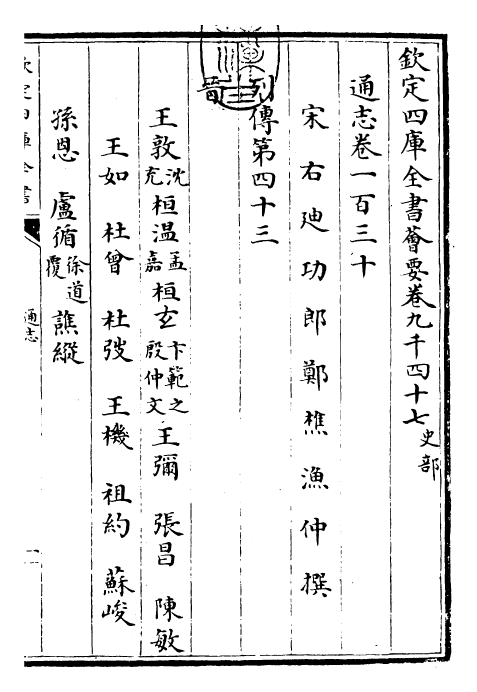 欽定四庫全書薈要卷九千四十七 史部
通志卷一百三十
宋右廸功郎鄭樵漁仲撰
列傳第四十三
晉
王敦 沈充 桓温 孟嘉 桓玄 卞範之 殷仲文 王彌 張昌 陳敏
王如 杜曾 杜弢 王機 祖約 蘇峻
孫恩 盧循 徐道覆 譙縱
欽定四庫全書
通志
一